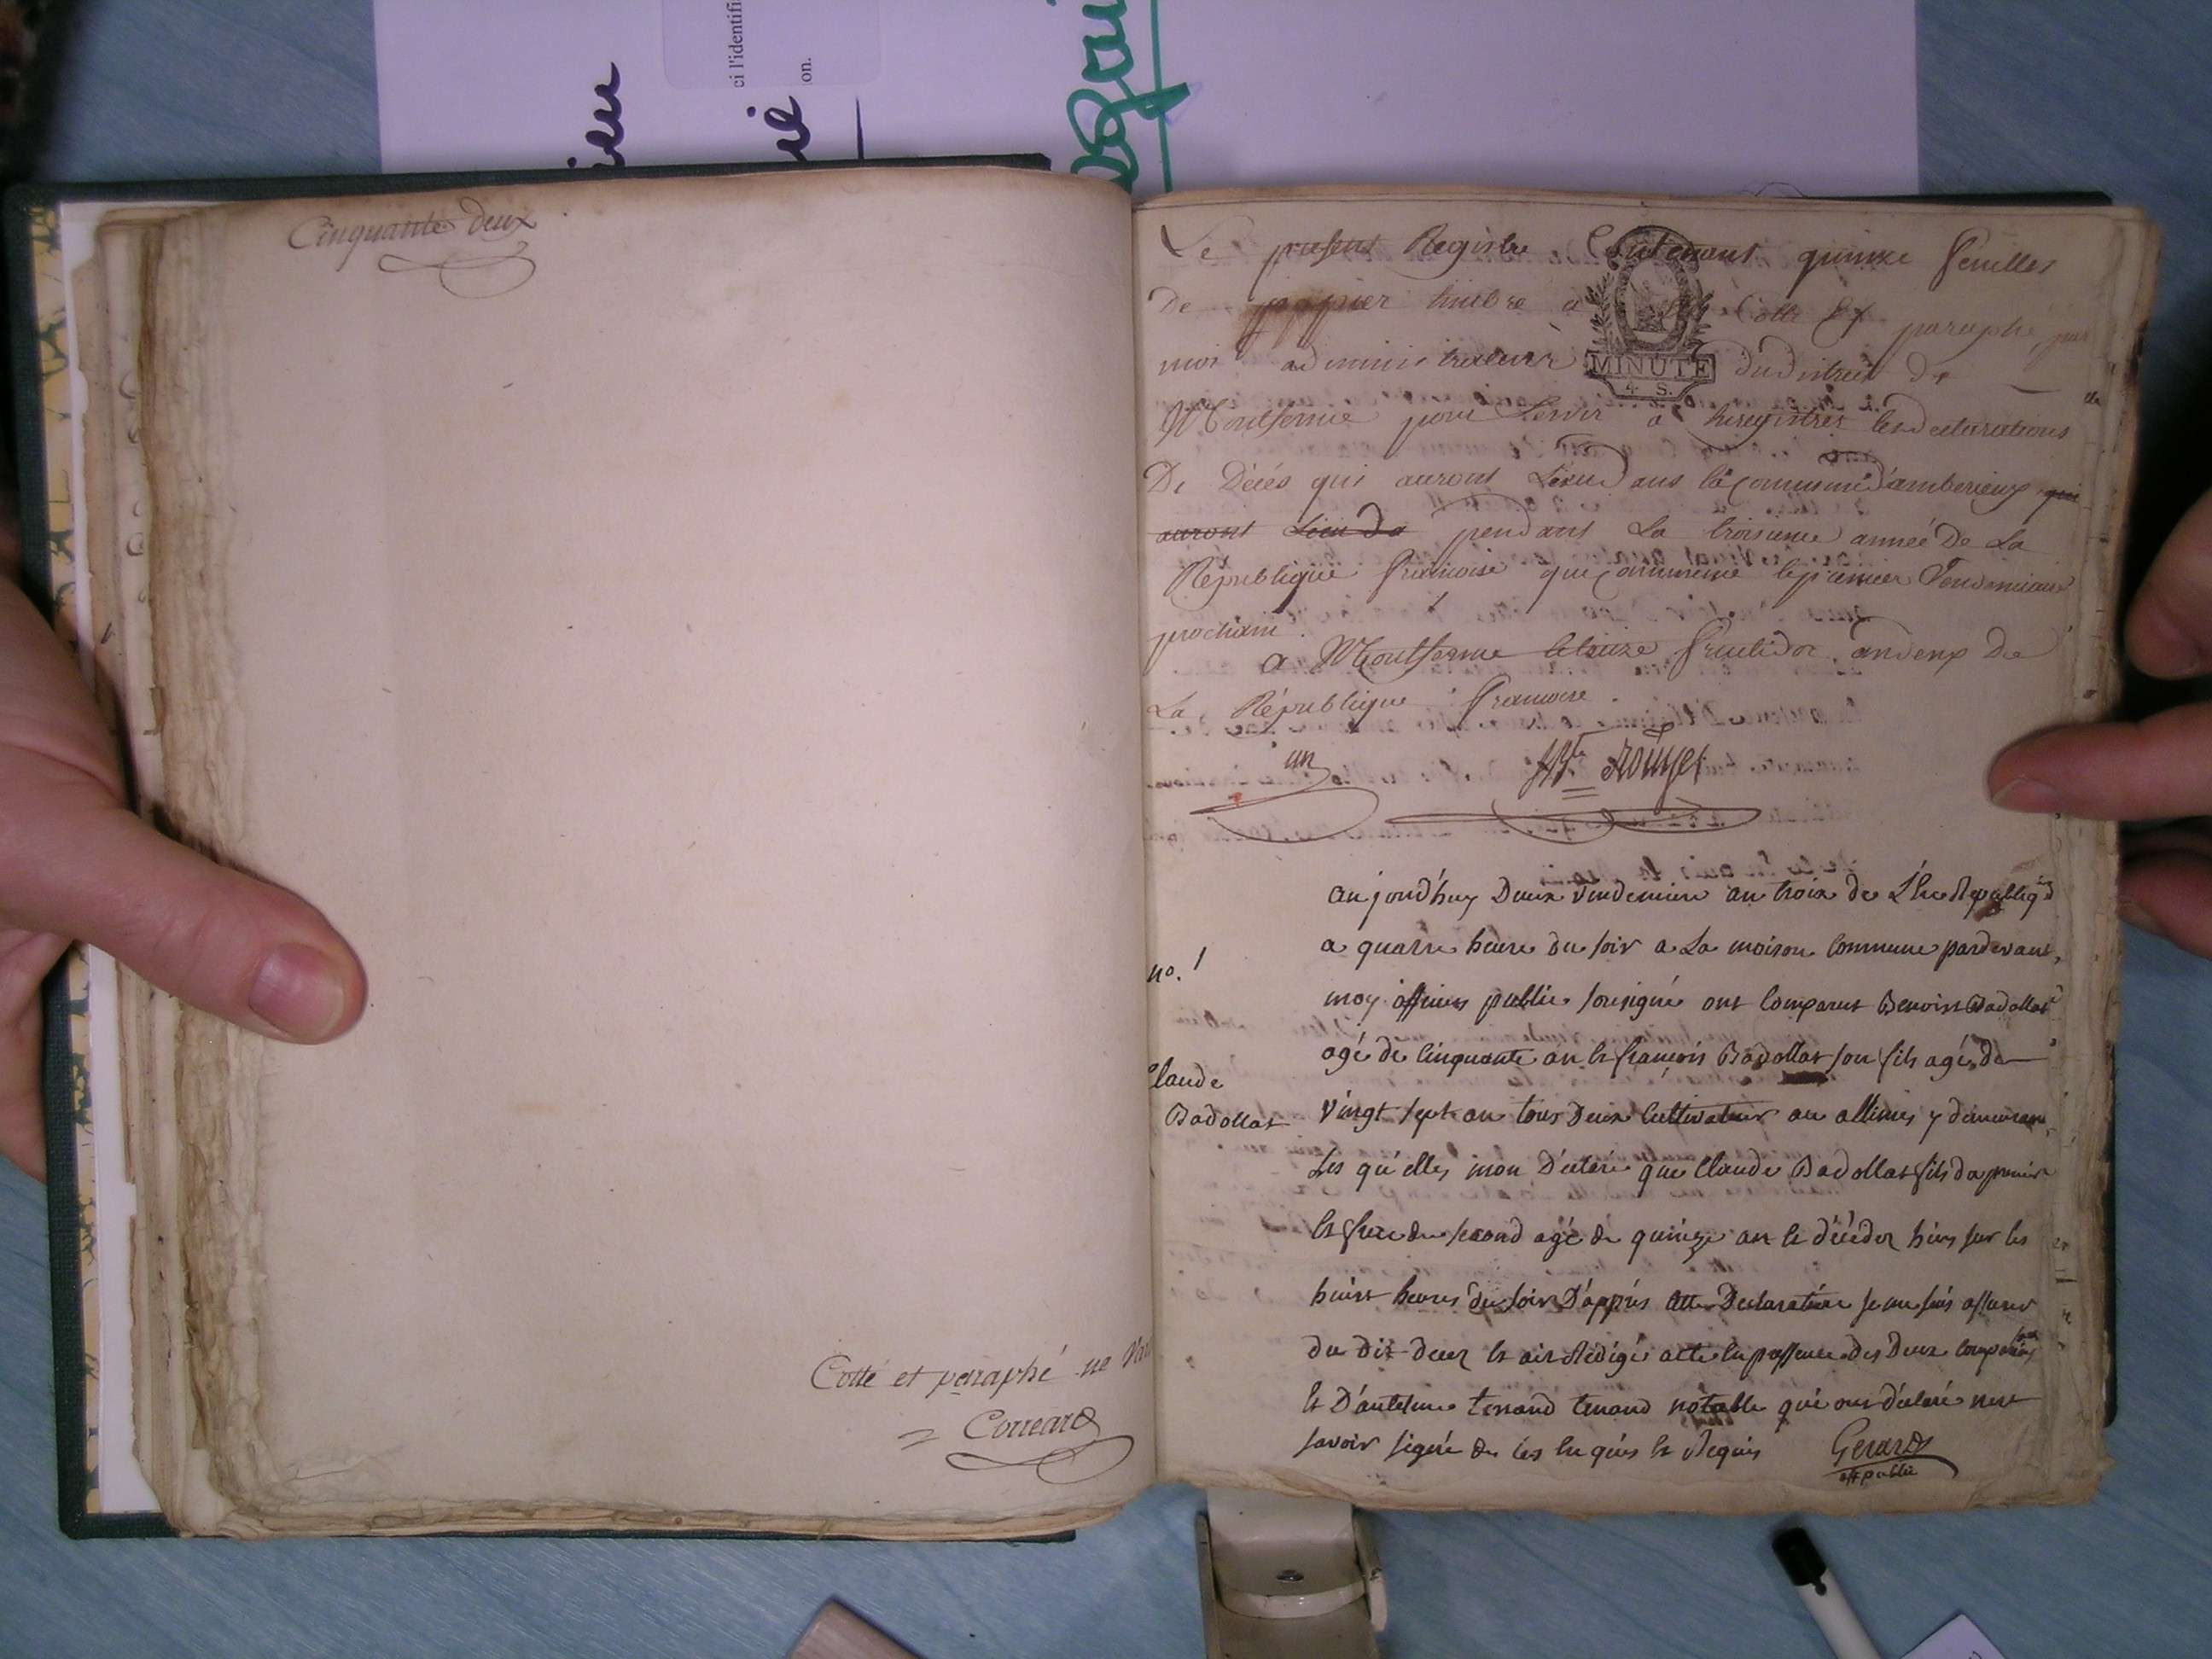 ci l'identifi
on.
Cinquante deux
Cotté et paraphé ne Var
Correard
Le present Registre Contenant quinze feuilles
De papier timbré a été Cotté Et paraphé, par
moi administrateur du district de
MINUTE
4. S.
Montferme pour Servir a Enregistrer les declarations
De Décés qui auront Lieu dans la Commune d'amberieux qui
auront Lieu da pendant La troisieme année De La
République francoise qui Commence le premier Vendemiaire
prochain.
a Montferme le treize fructidor an deux De
La République francoise.
un
Rouyer
no. 1
Claude
Badollat
aujourd'huy Deux vendemiere an troix de L'here Republiq
a quatre heure du soir a La moison Commune pardevant
moy officies public sousigné ont Comparut Benoist Badollat
agé de Cinquante an Et françois Badollat son fils agé de
vingt sept an tous Deux Cultivateur au allimes y demeuran
Les qu'elles mon Déclaré que Claude Badollat fils du premier
Et frere du second agé de quinze an Et décéder hier sur les
huist heures du soir D'apprés cette Declaration je me suis assurer
du dit decez Et ait Rédigé acte En pressence des Deux comparans
Et D'antelme tenand tenand notable qui ont déclaré nest
savoir signé de ces Enquis Et Requis
Gerard
off public